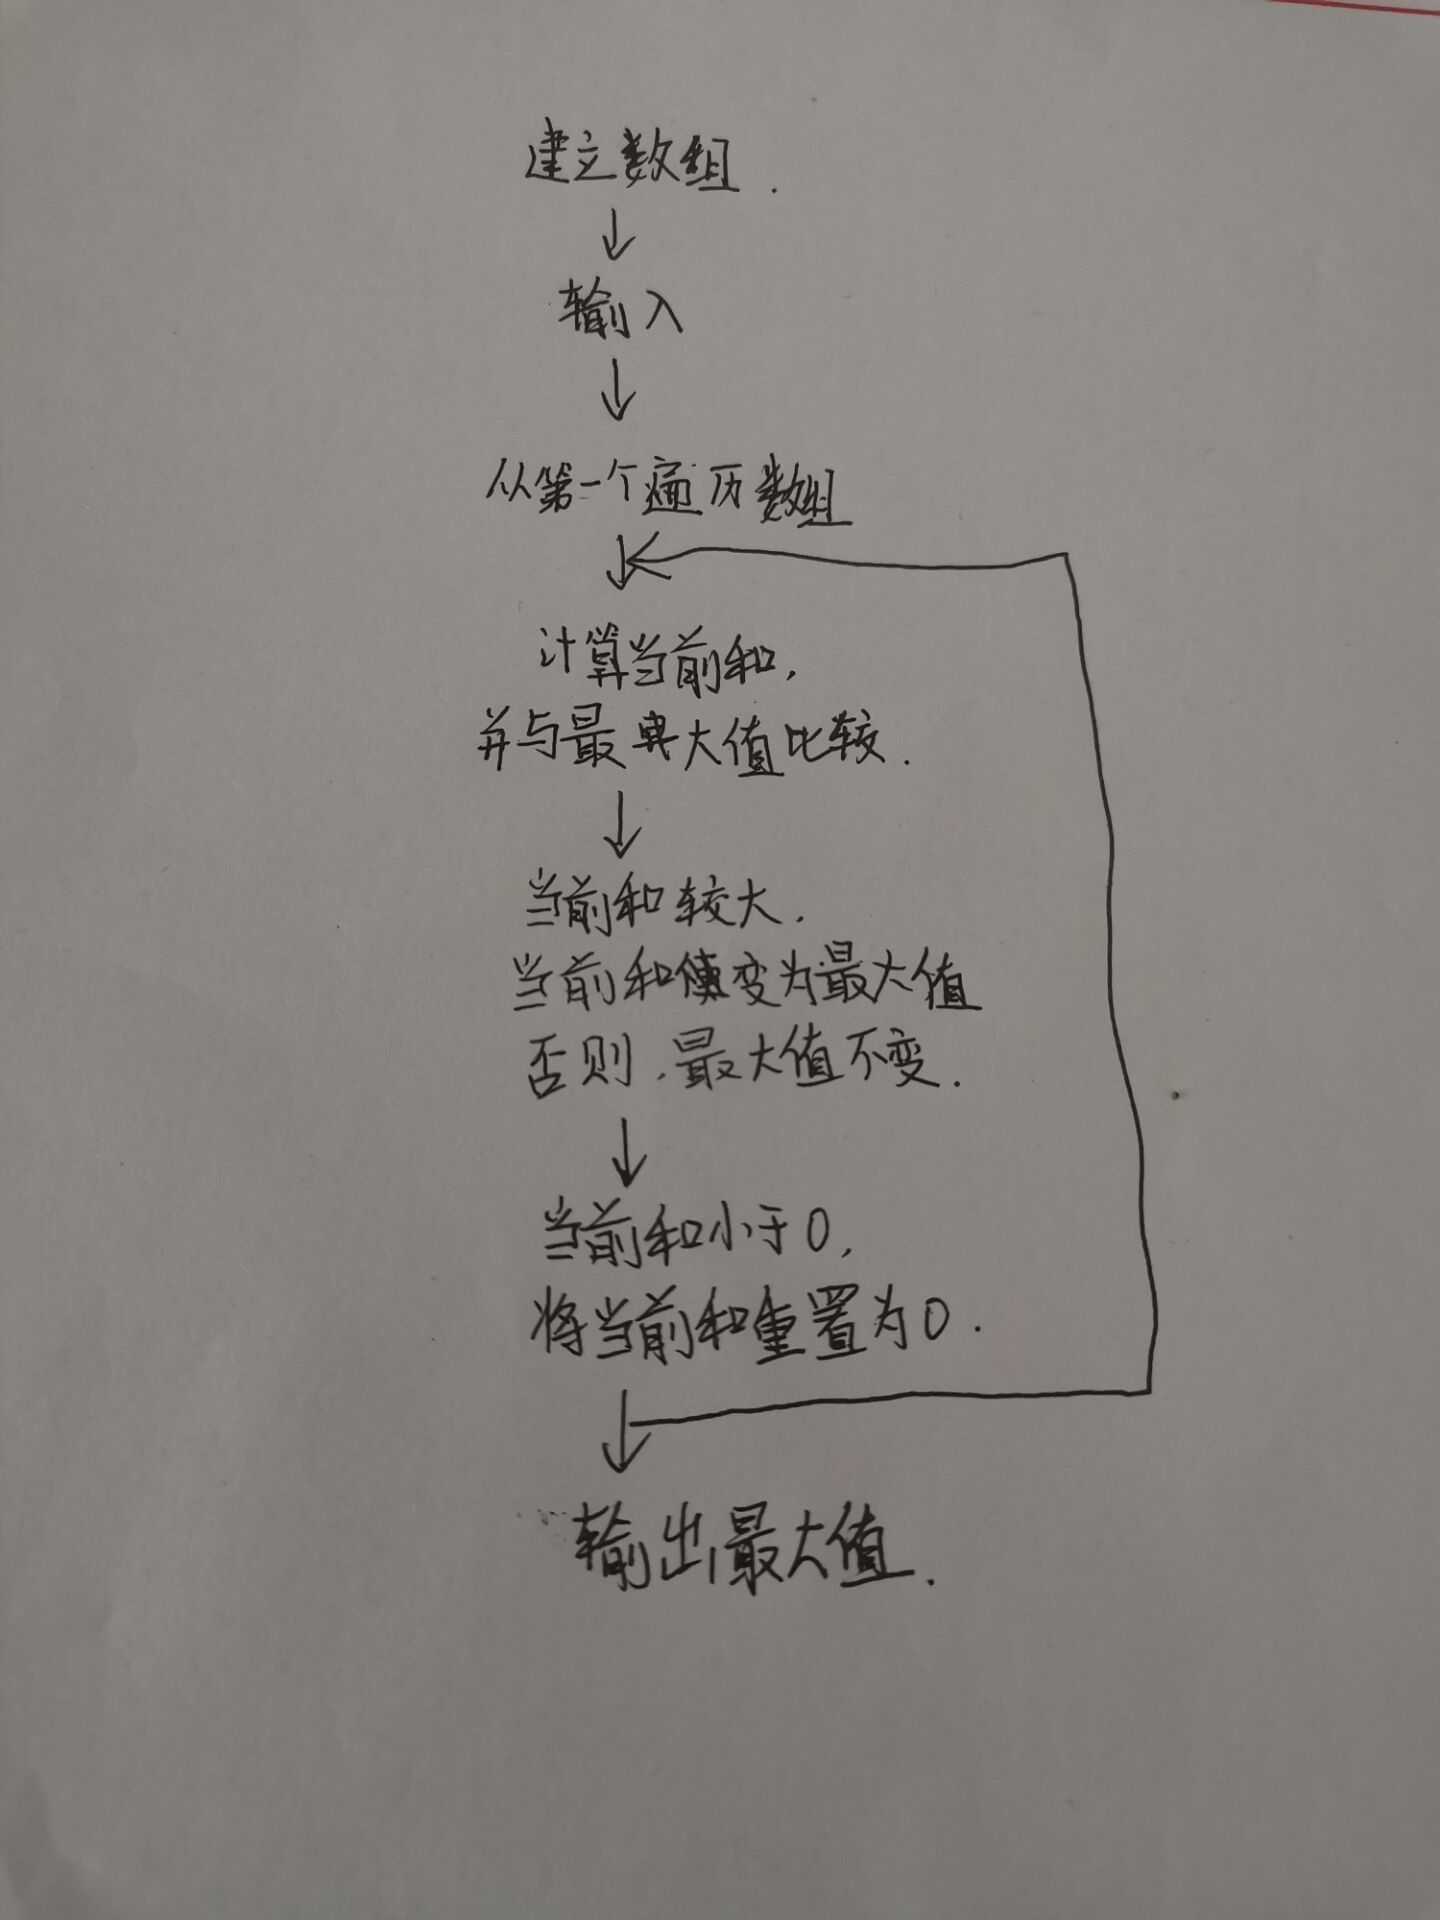 建立数组.
输入
从第一个遍历数组
计算当前和,
并与最大值比较.
当前和较大.
当前和变为最大值
否则.最大值不变.
当前和小于0,
将当前和重置为0.
输出最大值.